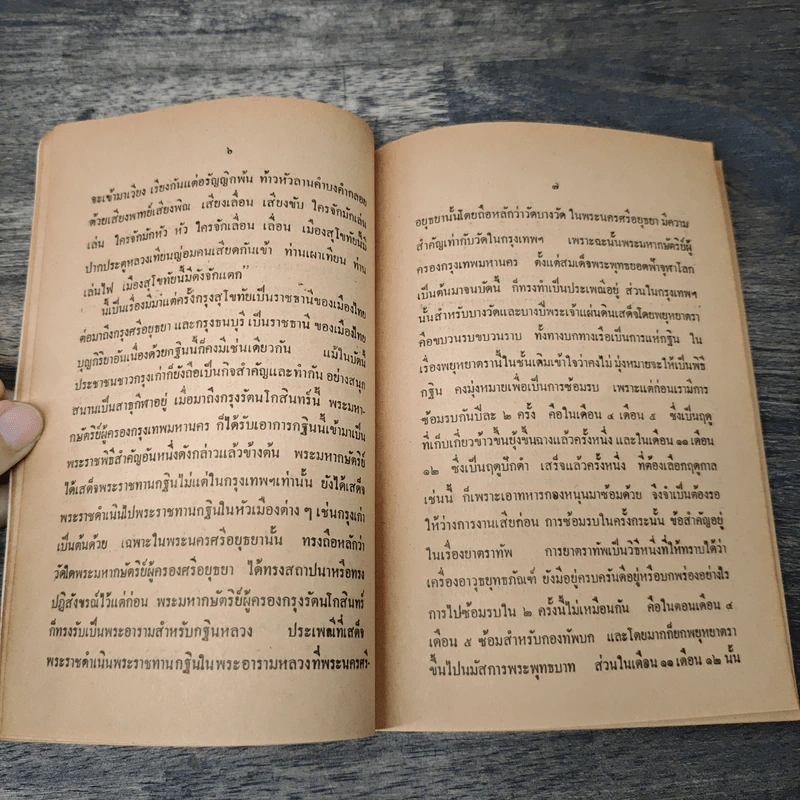 ๖
จะเข้ามาเวียง เรียงกันแต่อรัญญิกพ้น ท้าวหัวลานคำบงคำกลอย
ด้วยเสียงพาทย์เสียงพิณ เสียงเลื่อน เสียงขับ ใครจักมักเล่น
เล่น ใครจักมักหัว หัว ใครจักเลื่อน เลื่อน เมืองสุโขทัยนี้มี
ปากประตูหลวงเทียนญ่อมคนเสียดกันเข้า ท่านเผาเทียน ท่าน
เล่นไฟ เมืองสุโขทัยนี้มีดังจักแตก"
นี้เป็นเรื่องมีมาแต่ครั้งกรุงสุโขทัยเป็นราชธานีของเมืองไทย
ต่อมาถึงกรุงศรีอยุธยา และกรุงธนบุรี เป็นราชธานี ของเมืองไทย
บุญกิริยาอันเนื่องด้วยกฐินนี้ก็คงมีเช่นเดียวกัน แม้ในบัดนี้
ประชาชนชาวกรุงเก่าก็ยังถือเป็นกิจสำคัญและทำกัน อย่างสนุก
สนานเป็นสาธุกีฬาอยู่ เมื่อมาถึงกรุงรัตนโกสินทร์นี้ พระมหา-
กษัตริย์ผู้ครองกรุงเทพมหานคร ก็ได้รับเอาการกฐินนี้เข้ามาเป็น
พระราชพิธีสำคัญอันหนึ่งดังกล่าวแล้วข้างต้น พระมหากษัตริย์
ได้เสด็จพระราชทานกฐินไม่แต่ในกรุงเทพฯเท่านั้น ยังได้เสด็จ
พระราชดำเนินไปพระราชทานกฐินในหัวเมืองต่าง ๆ เช่นกรุงเก่า
เป็นต้นด้วย เฉพาะในพระนครศรีอยุธยานั้น ทรงถือหลักว่า
วัดใดพระมหากษัตริย์ผู้ครองศรีอยุธยา ได้ทรงสถาปนาหรือทรง
ปฏิสังขรณ์ไว้แต่ก่อน พระมหากษัตริย์ผู้ครองกรุงรัตนโกสินทร์
ก็ทรงรับเป็นพระอารามสำหรับกฐินหลวง ประเพณีที่เสด็จ
พระราชดำเนินพระราชทานกฐินในพระอารามหลวงที่พระนครศรี-
๗
อยุธยานั้นโดยถือหลักว่าวัดบางวัด ในพระนครศรีอยุธยา มีความ
สำคัญเท่ากับวัดในกรุงเทพฯ เพราะฉะนั้นพระมหากษัตริย์ผู้
ครองกรุงเทพมหานคร ตั้งแต่สมเด็จพระพุทธยอดฟ้าจุฬาโลก
เป็นต้นมาจนบัดนี้ ก็ทรงทำเป็นประเพณีอยู่ ส่วนในกรุงเทพฯ
นั้นสำหรับบางวัดและบางปีพระเจ้าแผ่นดินเสด็จโดยพยุหยาตรา
คือขบวนรบขบวนราบ ทั้งทางบกทางเรือเป็นการแห่กฐิน ใน
เรื่องพยุหยาตรานี้ในชั้นเดิมเข้าใจว่าคงไม่ มุ่งหมายจะให้เป็นพิธี
กฐิน คงมุ่งหมายเพื่อเป็นการซ้อมรบ เพราะแต่ก่อนเรามีการ
ซ้อมรบกันปีละ ๒ ครั้ง คือในเดือน ๔ เดือน ๕ ซึ่งเป็นฤดู
ที่เก็บเกี่ยวข้าวขึ้นยุ้งขึ้นฉางแล้วครั้งหนึ่ง และในเดือน ๑๑ เดือน
๑๒ ซึ่งเป็นฤดูปักดำ เสร็จแล้วครั้งหนึ่ง ที่ต้องเลือกฤดูกาล
เช่นนี้ ก็เพราะเอาทหารกองหนุนมาซ้อมด้วย จึงจำเป็นต้องรอ
ให้ว่างการงานเสียก่อน การซ้อมรบในครั้งกระนั้น ข้อสำคัญอยู่
ในเรื่องยาตราทัพ การยาตราทัพเป็นวิธีหนึ่งที่ให้ทราบได้ว่า
เครื่องอาวุธยุทธภัณฑ์ ยังมีอยู่ครบครันดีอยู่หรือบกพร่องอย่างไร
การไปซ้อมรบใน ๒ ครั้งนี้ไม่เหมือนกัน คือในตอนเดือน ๔
เดือน ๕ ซ้อมสำหรับกองทัพบก และโดยมากก็ยกพยุหยาตรา
ขึ้นไปนมัสการพระพุทธบาท ส่วนในเดือน ๑๑ เดือน ๑๒ นั้น